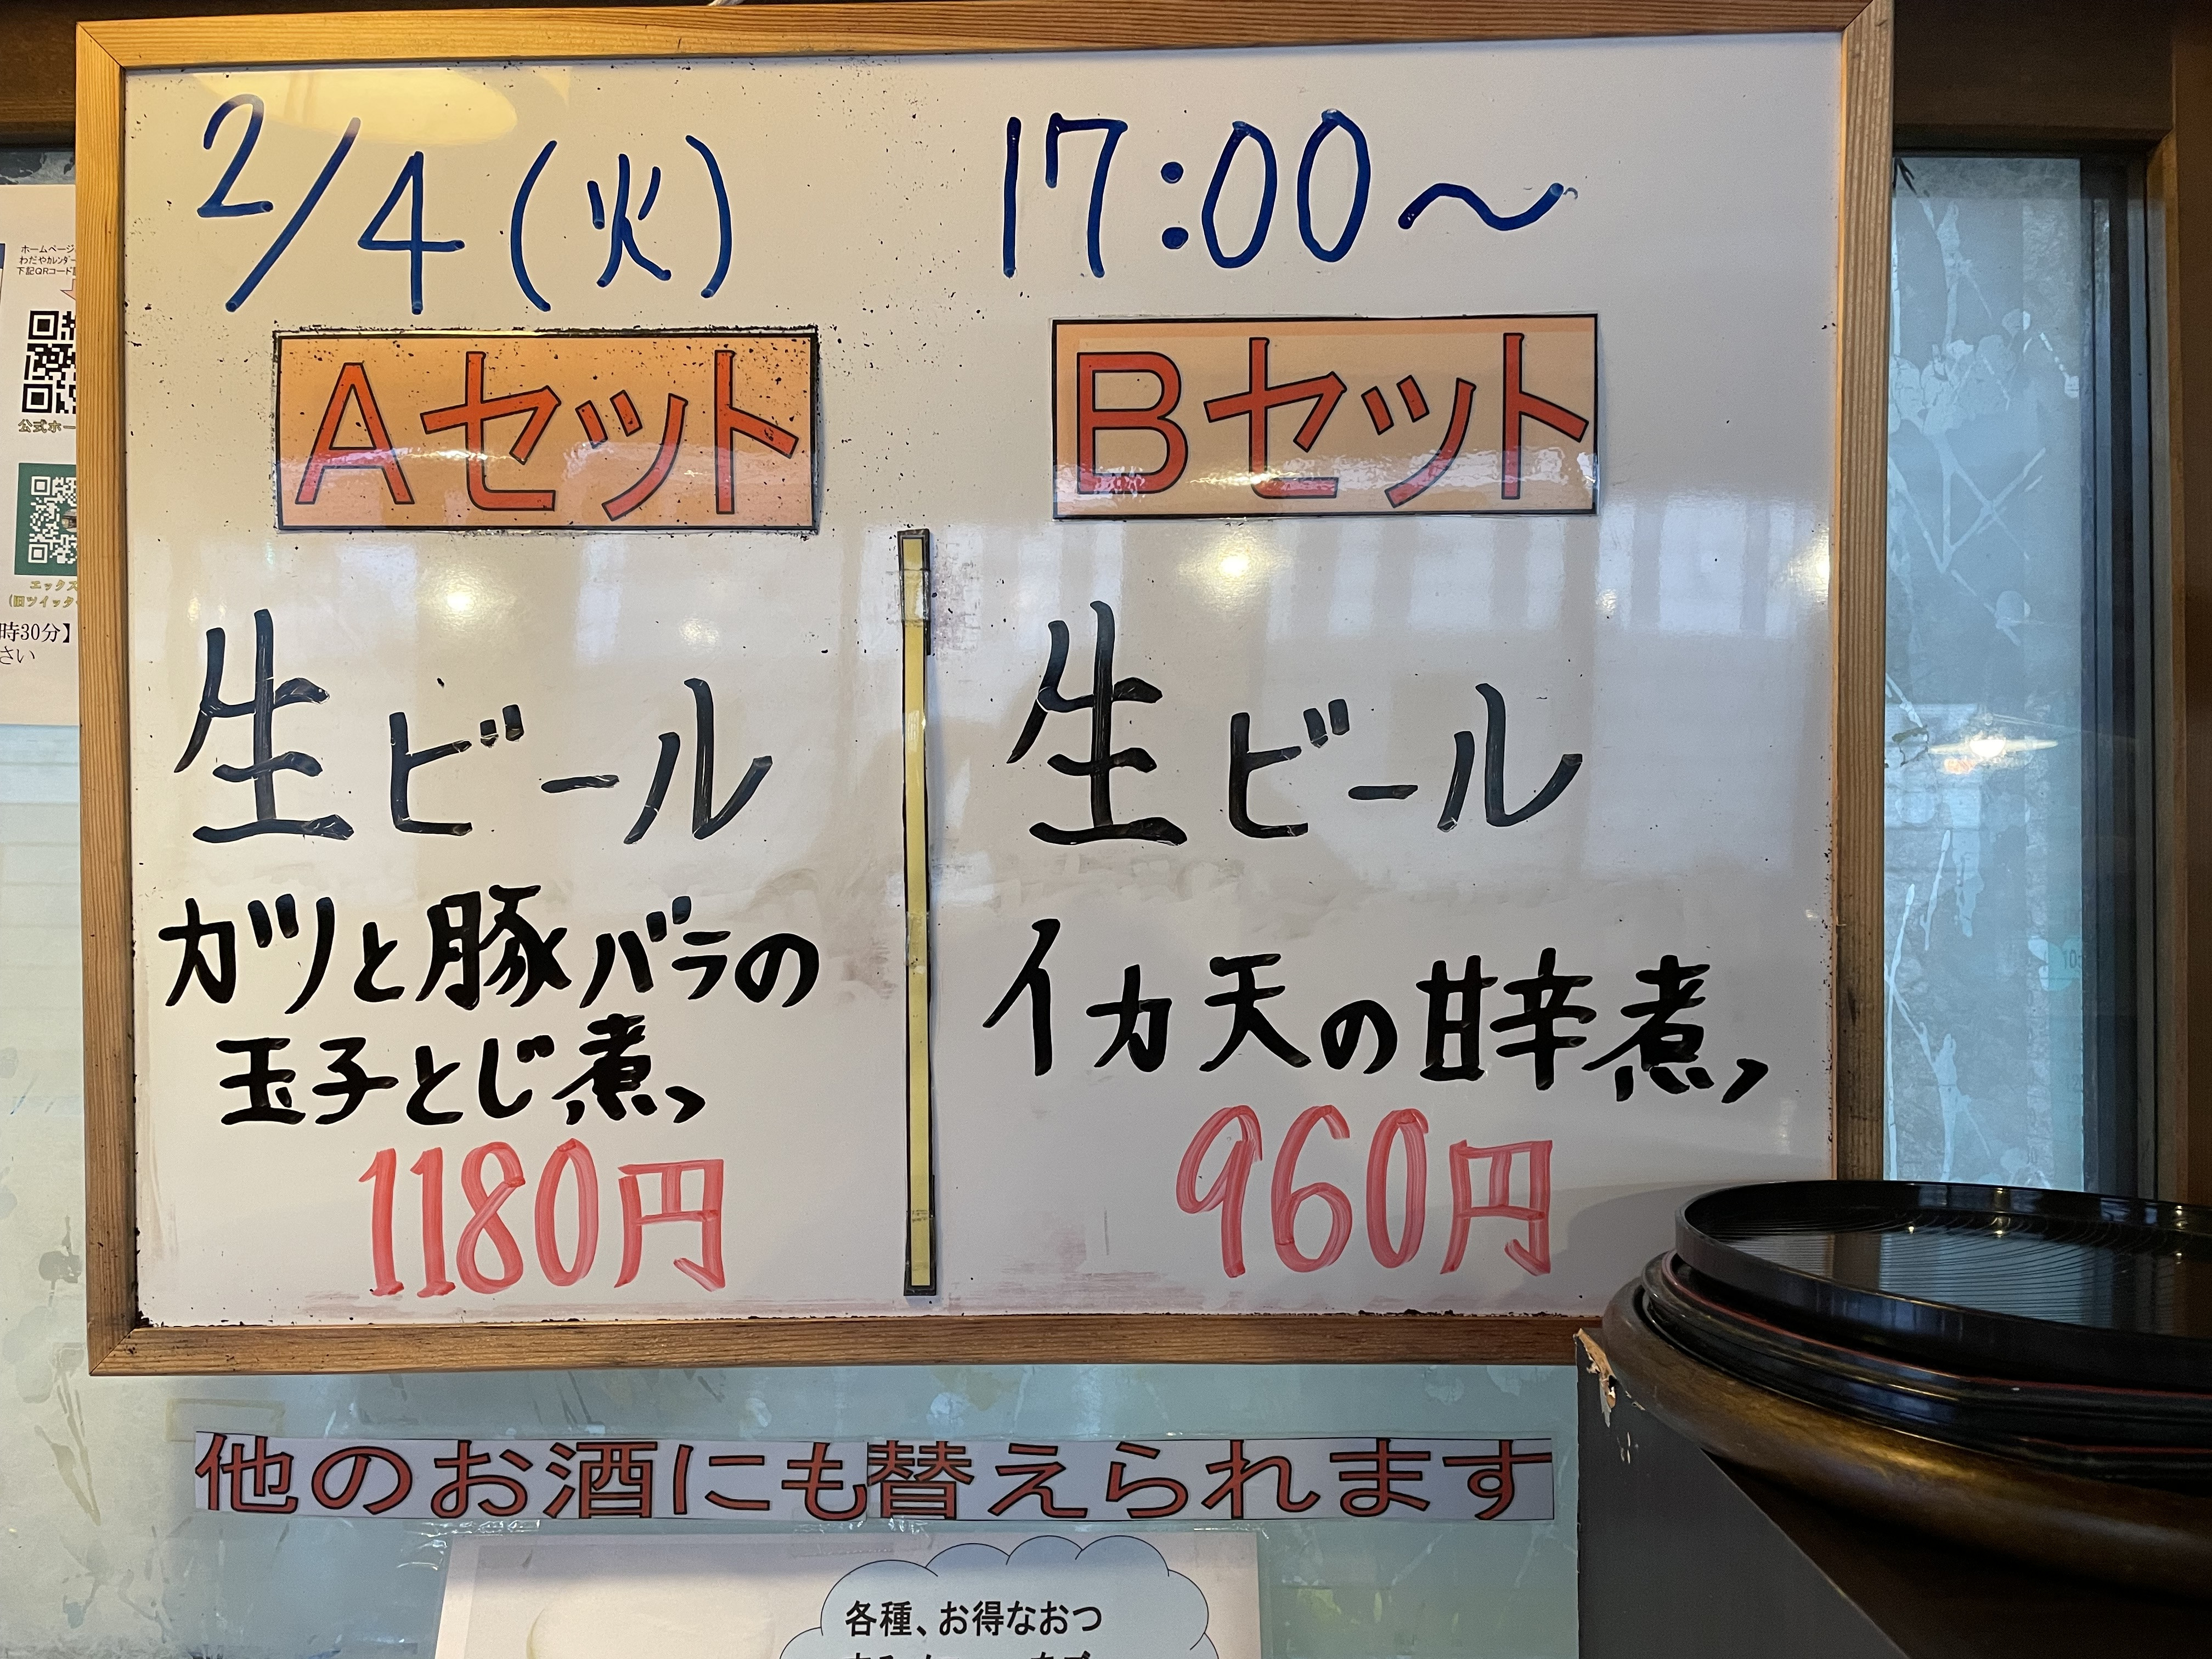 2/4(火) 17:00〜
Aセット
生ビール
ガツと豚バラの
玉子とじ煮
1180円
Bセット
生ビール
イカ天の甘辛煮
960円
他のお酒にも替えられます
各種、お得なおつ
ホームページ
わだやカレンダー
下記QRコード
公式ホー
エックス
(旧ツイッター
時30分】
さい